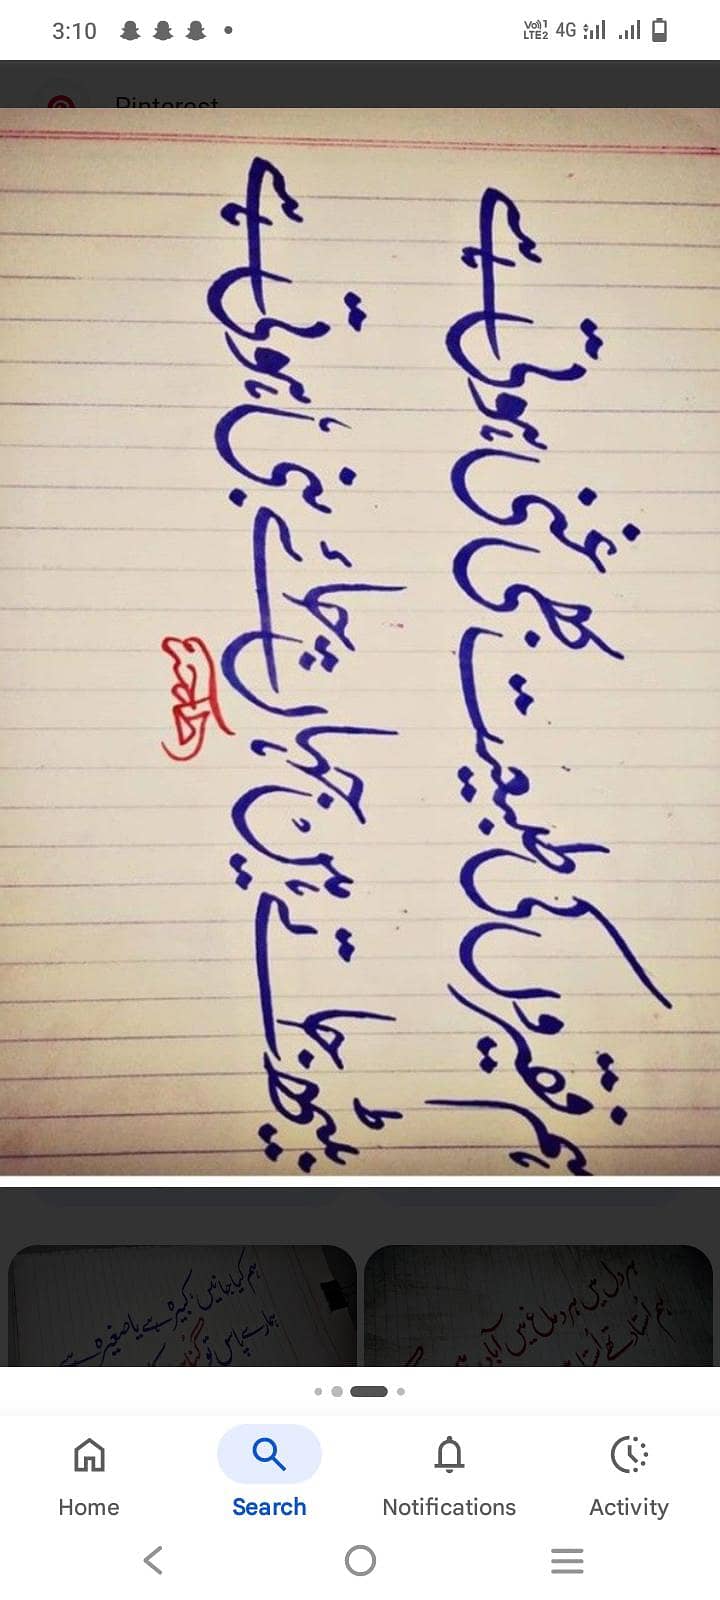 3:10
Vo1 LTE2 4G
Pinterest
ہم فقیروں کی طبیعت بھی غنی ہوتی ہے
بیٹھ جاتے ہیں جہاں چائے بنی ہوتی ہے
ہم کیا جانیں کبیرہ ہے یا صغیرہ ہے
ہمارے پاس تو
ہر دل میں ہر دماغ میں آباد
ہم استاد تھے
Home
Search
Notifications
Activity